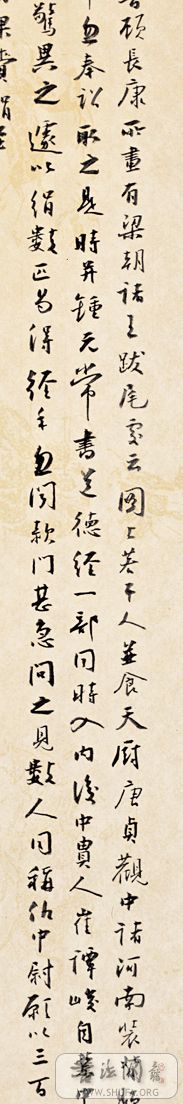 晉顧長康所畫有梁朝諸王跋尾處云圖上若干人並食天厨唐貞觀中褚河南裝
忽奉訟取之是時并鍾元常書道德經一部同時入內後中貴人崔譚峻自禁中
驚異之遽以絹數匹易得經年忽聞款門甚急問之見數人同稱仇中尉願以三百
費絹
書法
WWW.SHUFA.ORG